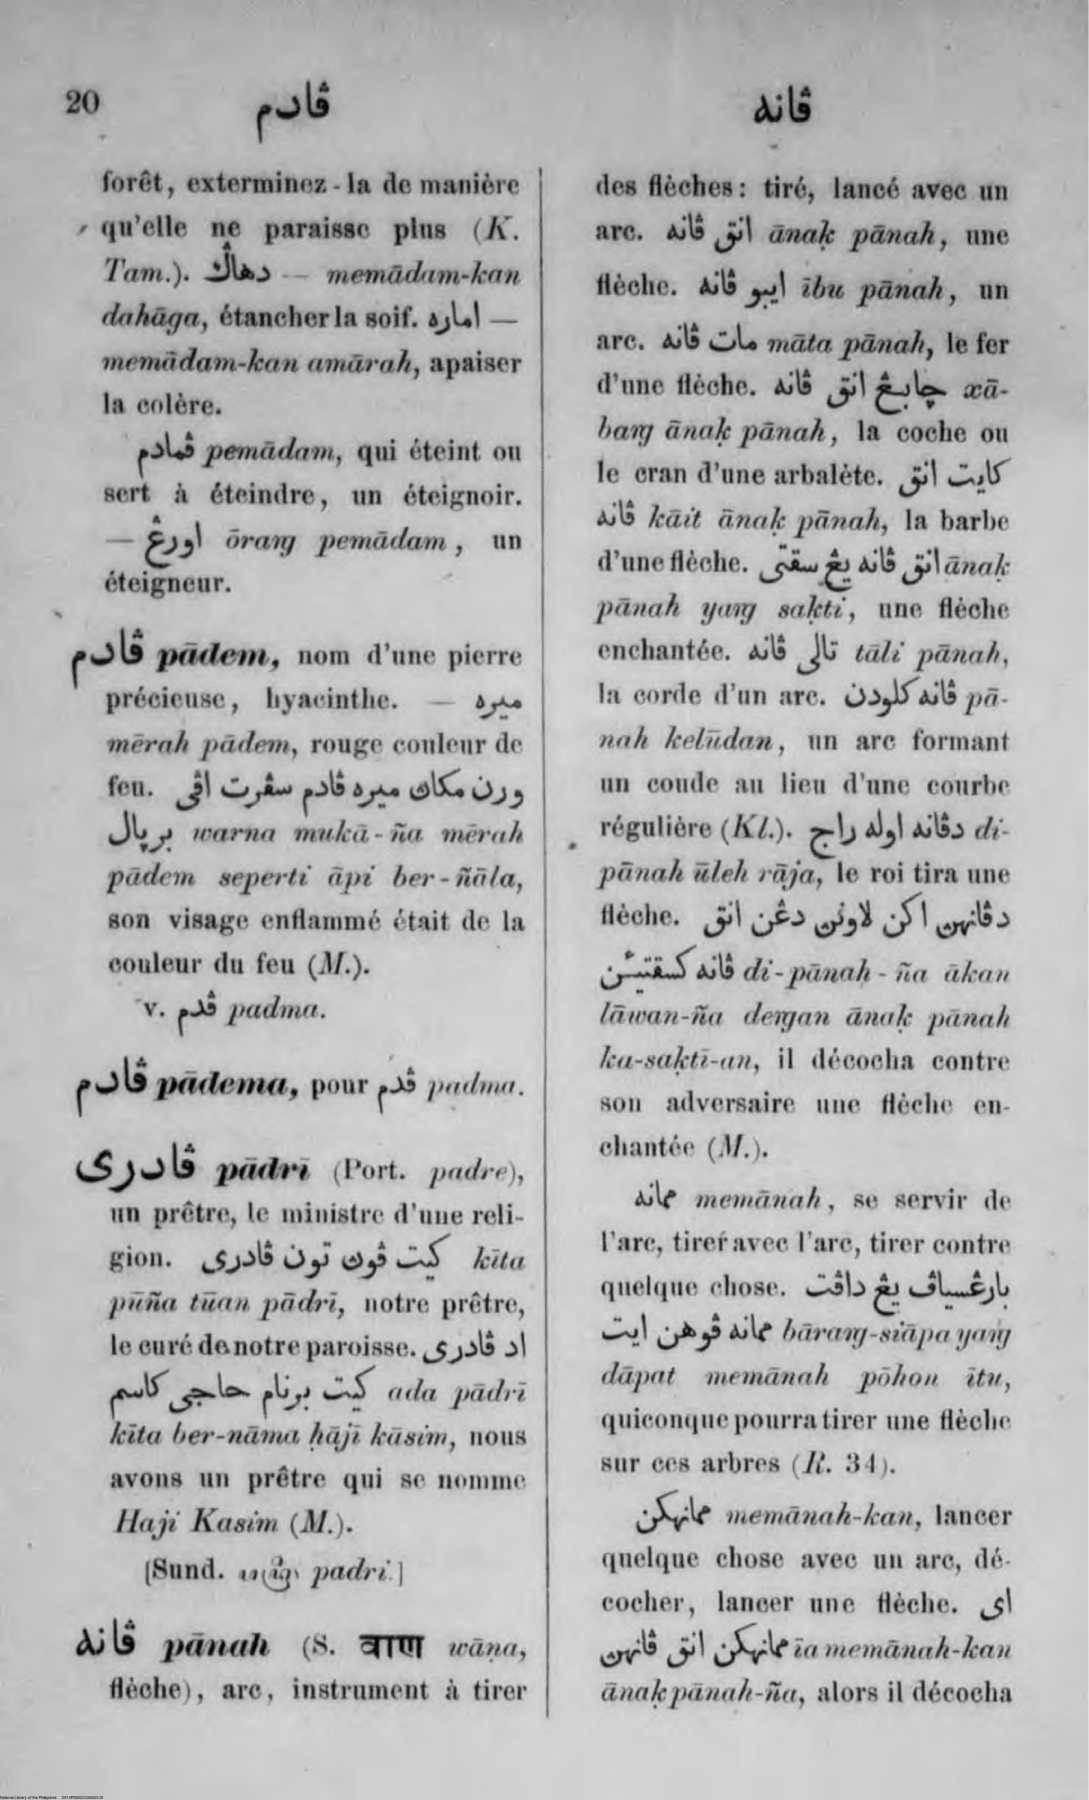 20 ڤادم ڤانه
forêt, exterminez-la de manière
qu'elle ne paraisse plus (K.
Tam.). دهاݢ — memādam-kan
dahāga, étancher la soif. اماره —
memādam-kan amārah, apaiser
la colère.
ڤمادم pemādam, qui éteint ou
sert à éteindre, un éteignoir.
— اورڠ ōrang pemādam, un
éteigneur.
ڤادم pādem, nom d'une pierre
précieuse, hyacinthe. — ميره
mērah pādem, rouge couleur de
feu. ورن مكاڽ ميره ڤادم سڤرت اڤى
برڽال warna mukā-ña mērah
pādem seperti āpi ber-ñāla,
son visage enflammé était de la
couleur du feu (M.).
v. ڤدم padma.
ڤادم pādema, pour ڤدم padma.
ڤادرى pādrī (Port. padre),
un prêtre, le ministre d'une reli-
gion. كيت ڤوڽ تون ڤادرى kīta
pūña tūan pādrī, notre prêtre,
le curé de notre paroisse. اد ڤادرى
كيت برنام حاجى كاسم ada pādrī
kīta ber-nāma ḥājī kāsim, nous
avons un prêtre qui se nomme
Haji Kasim (M.).
[Sund. padri.]
ڤانه pānah (S. वाण wāṇa,
flèche), arc, instrument à tirer
des flèches: tiré, lancé avec un
arc. انق ڤانه ānaḳ pānah, une
flèche. ايبو ڤانه ību pānah, un
arc. مات ڤانه māta pānah, le fer
d'une flèche. چابڠ انق ڤانه xā-
bang ānaḳ pānah, la coche ou
le cran d'une arbalète. كايت انق
ڤانه kāit ānaḳ pānah, la barbe
d'une flèche. انق ڤانه يڠ سقتى ānaḳ
pānah yang saḳti, une flèche
enchantée. تالى ڤانه tāli pānah,
la corde d'un arc. ڤانه كلودن pā-
nah kelūdan, un arc formant
un coude au lieu d'une courbe
régulière (Kl.). دڤانه اوله راج di-
pānah ūleh rāja, le roi tira une
flèche. دڤانهڽ اكن لاونڽ دڠن انق
ڤانه كسقتيئن di-pānah-ña ākan
lāwan-ña dengan ānaḳ pānah
ka-saḳtī-an, il décocha contre
son adversaire une flèche en-
chantée (M.).
ممانه memānah, se servir de
l'arc, tirer avec l'arc, tirer contre
quelque chose. بارڠسياڤ يڠ داڤت
ممانه ڤوهن ايت bārang-siāpa yang
dāpat memānah pōhon ītu,
quiconque pourra tirer une flèche
sur ces arbres (R. 34).
ممانهكن memānah-kan, lancer
quelque chose avec un arc, dé-
cocher, lancer une flèche. اى
ممانهكن انق ڤانهڽ īa memānah-kan
ānaḳ pānah-ña, alors il décocha